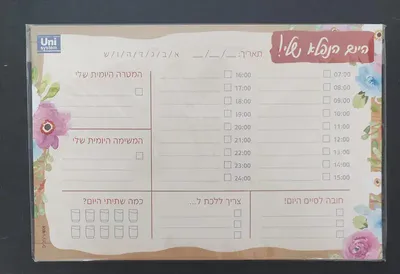 Uni
system
היום הנפלא שלי!
תאריך: __/__/__ א/ב/ג/ד/ה/ו/ש
המטרה היומית שלי
07:00
08:00
09:00
10:00
11:00
12:00
13:00
14:00
15:00
16:00
17:00
18:00
19:00
20:00
21:00
22:00
23:00
24:00
המשימה היומית שלי
חובה לסיים היום!
צריך ללכת ל...
כמה שתיתי היום?